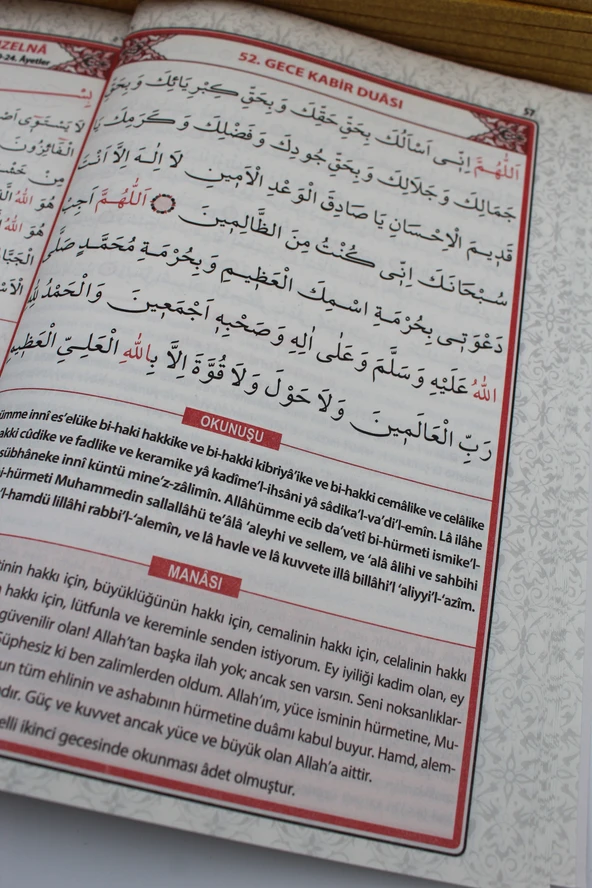 ZELNÂ
-24. Âyetler
57
52. GECE KABİR DUÂSI
اَللّٰهُمَّ اِنّ۪ى اَسْاَلُكَ بِحَقِّ حَقِّكَ وَ بِحَقِّ كِبْرِيَائِكَ وَ بِحَقِّ
جَمَالِكَ وَ جَلَالِكَ وَ بِحَقِّ جُودِكَ وَ فَضْلِكَ وَ كَرَمِكَ يَا
قَد۪يمَ الْاِحْسَانِ يَا صَادِقَ الْوَعْدِ الْاَم۪ينِ لَا اِلٰهَ اِلَّا اَنْتَ
سُبْحَانَكَ اِنّ۪ى كُنْتُ مِنَ الظَّالِم۪ينَ اَللّٰهُمَّ اَجِبْ
دَعْوَت۪ى بِحُرْمَةِ اسْمِكَ الْعَظ۪يمِ وَ بِحُرْمَةِ مُحَمَّدٍ صَلَّى
اللّٰهُ عَلَيْهِ وَ سَلَّمَ وَ عَلٰى اٰلِهِ وَ صَحْبِهِ اَجْمَع۪ينَ وَالْحَمْدُ لِلّٰهِ
رَبِّ الْعَالَم۪ينَ وَلَا حَوْلَ وَلَا قُوَّةَ اِلَّا بِاللّٰهِ الْعَلِيِّ الْعَظ۪يمِ
OKUNUŞU
ümme innî es'elüke bi-haki hakkike ve bi-hakki kibriyâ'ike ve bi-hakki cemâlike ve celâlike
akki cûdike ve fadlike ve keramike yâ kadîme'l-ihsâni yâ sâdika'l-va'di'l-emîn. Lâ ilâhe
sübhâneke innî küntü mine'z-zâlimîn. Allâhümme ecib da'vetî bi-hürmeti ismike'l-
i-hürmeti Muhammedin sallallâhü te'âlâ 'aleyhi ve sellem, ve 'alâ âlihi ve sahbihi
'l-hamdü lillâhi rabbi'l-'alemîn, ve lâ havle ve lâ kuvvete illâ billâhi'l 'aliyyi'l-'azîm.
MANÂSI
tinin hakkı için, büyüklüğünün hakkı için, cemalinin hakkı için, celalinin hakkı
hakkı için, lütfunla ve kereminle senden istiyorum. Ey iyiliği kadim olan, ey
güvenilir olan! Allah'tan başka ilah yok; ancak sen varsın. Seni noksanlıklar-
Şüphesiz ki ben zalimlerden oldum. Allah'ım, yüce isminin hürmetine, Mu-
un tüm ehlinin ve ashabının hürmetine duâmı kabul buyur. Hamd, alem-
dır. Güç ve kuvvet ancak yüce ve büyük olan Allah'a aittir.
elli ikinci gecesinde okunması âdet olmuştur.